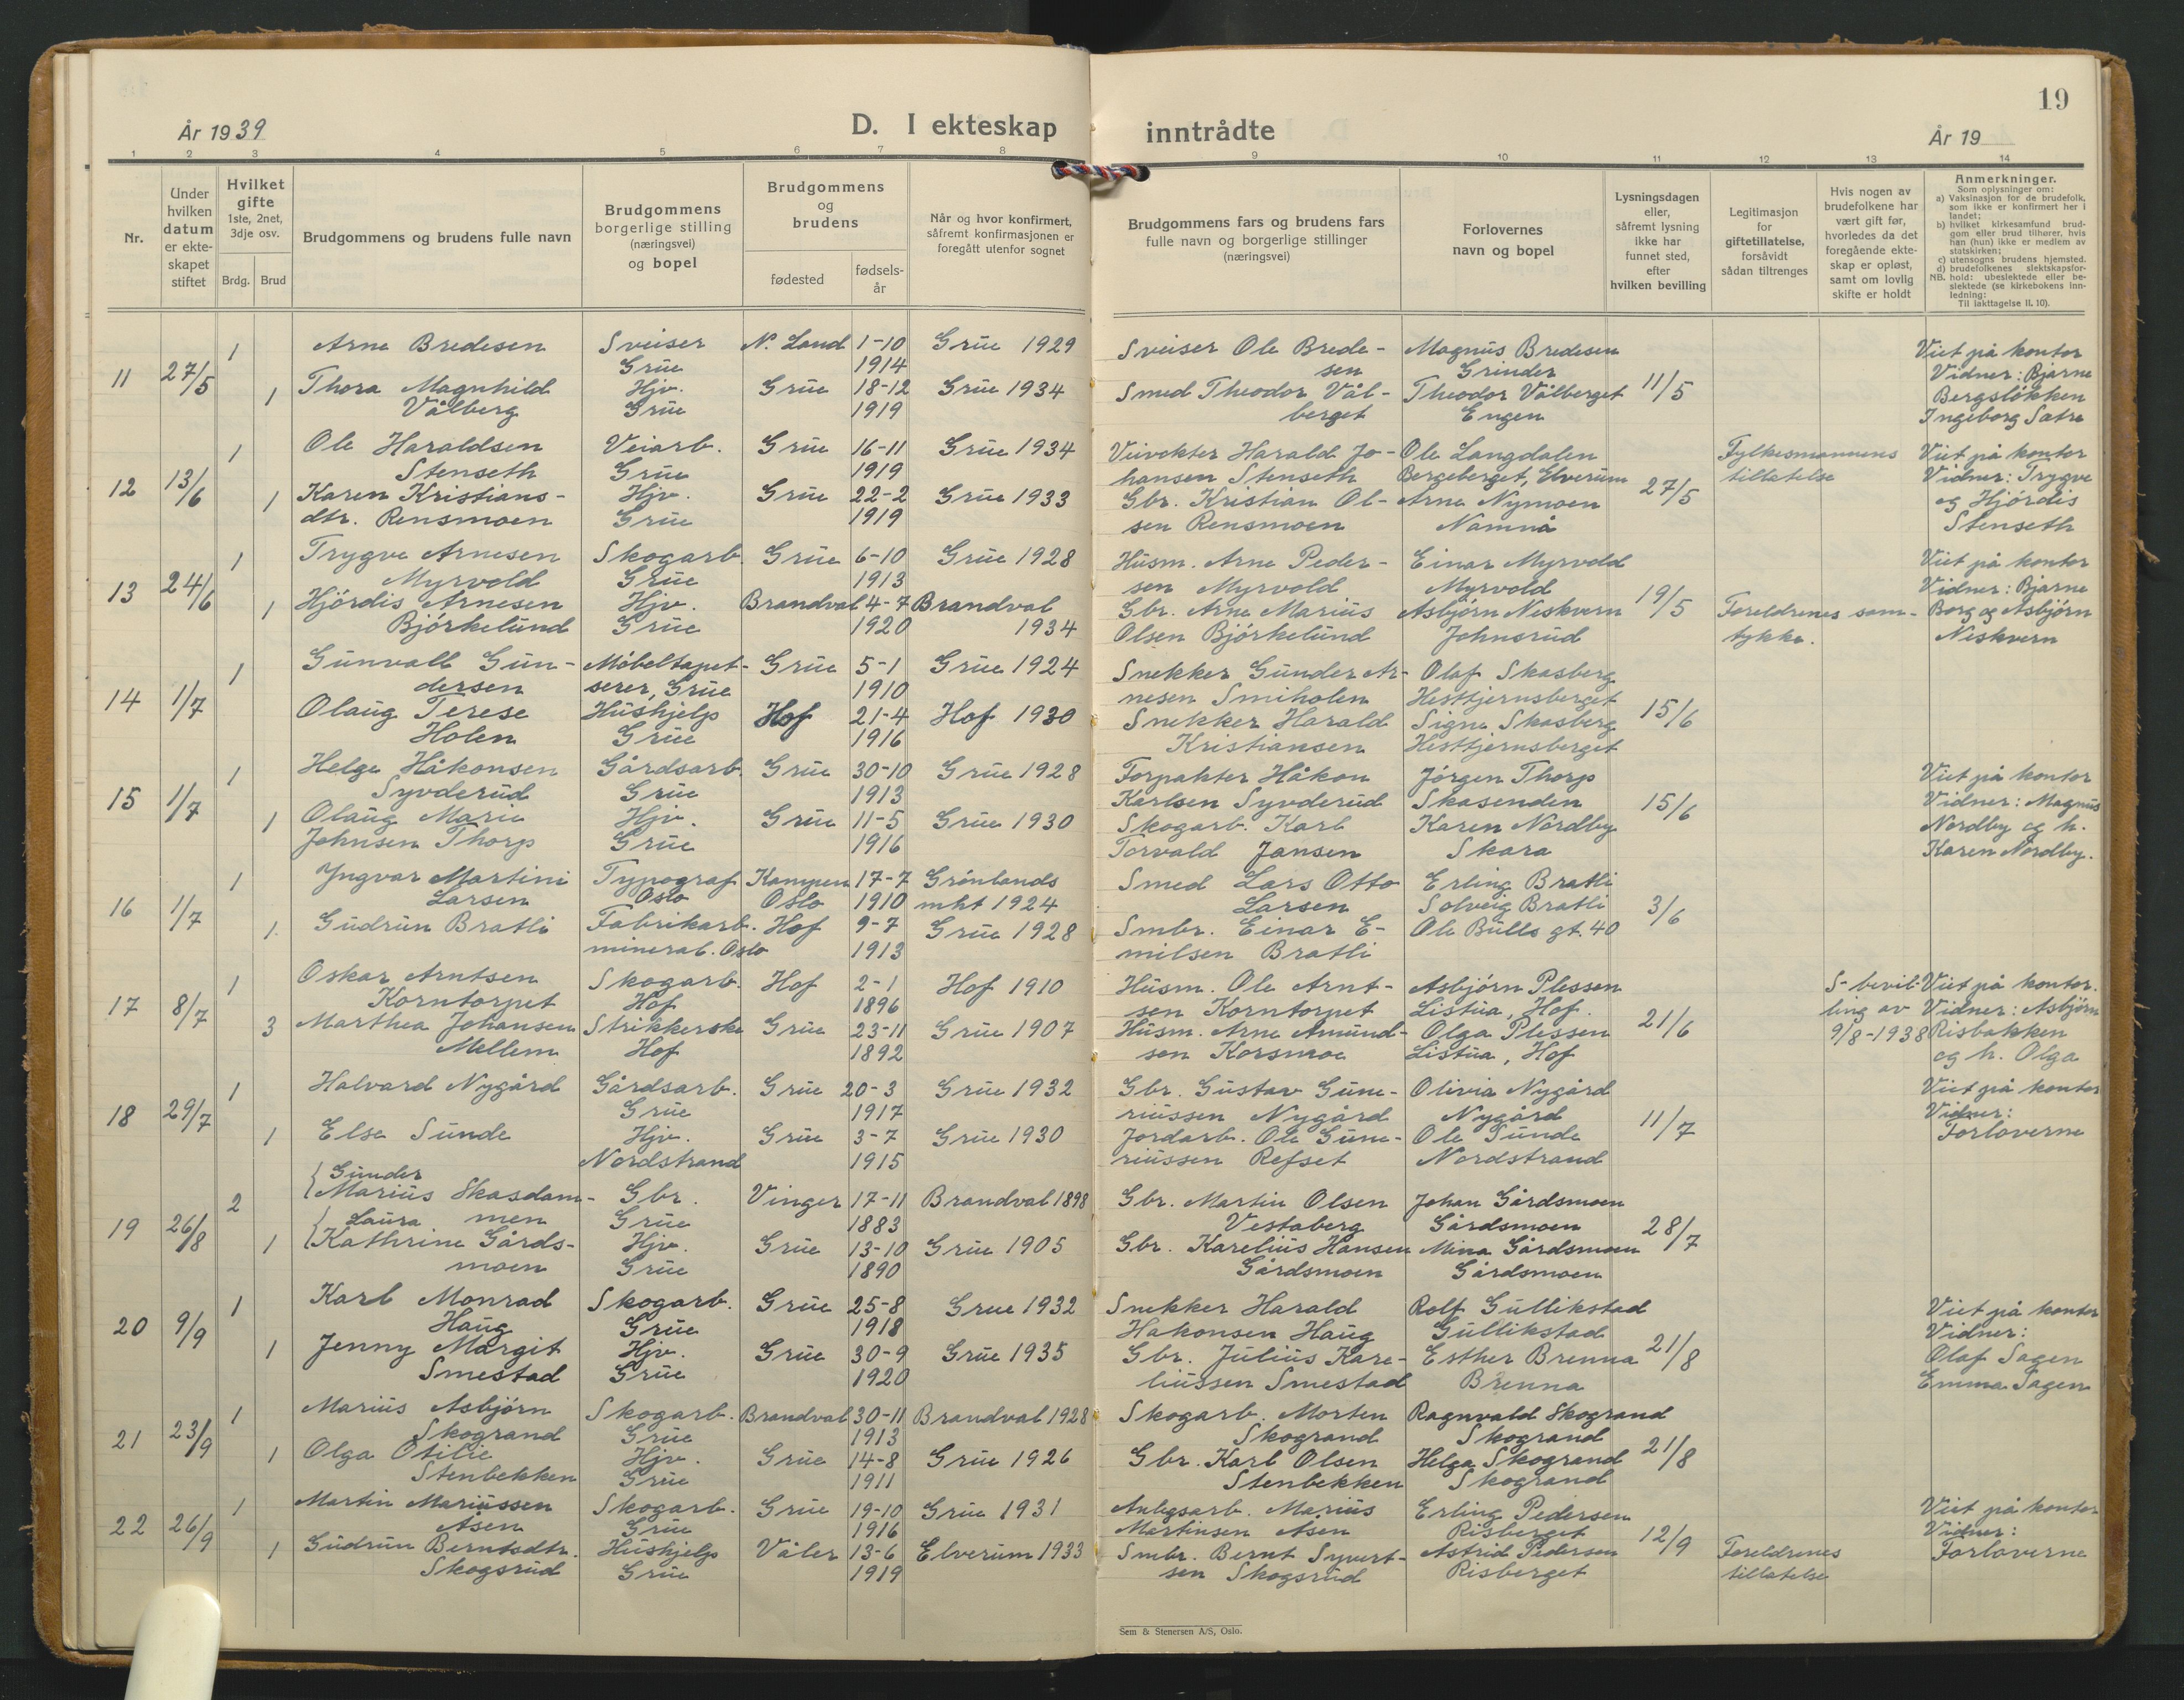 19
År 1939
D. I ekteskap inntrådte
År 19
1 2 3 4 5 6 7 8 9 10 11 12 13 14
Nr.
Under hvilken datum er ekteskapet stiftet
Hvilket gifte
1ste, 2net, 3dje osv.
Brdg. Brud
Brudgommens og brudens fulle navn
Brudgommens borgerlige stilling (næringsvei) og bopel
Brudgommens og brudens
fødested
fødselsår
Når og hvor konfirmert, såfremt konfirmasjonen er foregått utenfor sognet
Brudgommens fars og brudens fars fulle navn og borgerlige stillinger (næringsvei)
Forlovernes navn og bopel
Lysningsdagen eller, såfremt lysning ikke har funnet sted, efter hvilken bevilling
Legitimasjon for giftetillatelse, forsåvidt sådan tiltrenges
Hvis nogen av brudefolkene har vært gift før, hvorledes da det foregående ekteskap er opløst, samt om lovlig skifte er holdt
Anmerkninger.
Som oplysninger om:
a) Vaksinasjon for de brudefolk, som ikke er konfirmert her i landet;
b) hvilket kirkesamfund brudgom eller brud tilhører, hvis han (hun) ikke er medlem av statskirken;
c) utensogns brudens hjemsted.
d) brudefolkenes slektskapsforhold: ubeslektede eller beslektede (se kirkebokens innledning:
NB.
Til iakttagelse II. 10).
1 Arne Bredesen Sveiser N. Land 1-10 Grue 1929 Sveiser Ole Brede- Magnus Bredesen Viet på kontor
11 27/5 Grue 1914 sen Grinder Vidner: Bjarne
1 Thora Magnhild Hjv. Grue 18-12 Grue 1934 Smed Theodor Vål- Theodor Vålberget 11/5 Bergsløkken
Vålberg Grue 1919 berget Engen Ingeborg Sætre
1 Ole Haraldsen Veiarb. Grue 16-11 Grue 1934 Veivokter Harald Jo- Ole Langdalen Fylkesmannens Viet på kontor
12 13/6 Stenseth Grue 1919 hansen Stenseth Bergeberget, Elverum tillatelse Vidner: Trygve
1 Karen Kristians- Hjv. Grue 22-2 Grue 1933 Gbr. Kristian Ol- Arne Nymoen 27/5 og Hjørdis
dtr. Rensmoen Grue 1919 sen Rensmoen Namnå Stenseth
1 Trygve Arnesen Skogarb. Grue 6-10 Grue 1928 Husm. Arne Peder- Einar Myrvold Viet på kontor
13 24/6 Myrvold Grue 1913 sen Myrvold Myrvold Vidner: Bjarne
1 Hjørdis Arnesen Hjv. Brandval 4-7 Brandval Gbr. Arne Marius Asbjørn Niskvern 19/5 Foreldrenes sam- Borg og Asbjørn
Bjørkelund Grue 1920 1934 Olsen Bjørkelund Johnsrud tykke. Niskvern
1 Gunvall Gun- Møbeltapet- Grue 5-1 Grue 1924 Snekker Gunder Ar- Olaf Skasberg
14 1/7 dersen serer, Grue 1910 nesen Smiholen Hesttjernsberget
Olaug Terese Hushjelp Hof 21-4 Hof 1930 Snekker Harald Signe Skasberg 15/6
Holen Grue 1916 Kristiansen Hesttjernsberget
1 Helge Håkonsen Gårdsarb. Grue 30-10 Grue 1928 Forpakter Håkon Jørgen Thorp Viet på kontor
15 1/7 Syvderud Grue 1913 Karlsen Syvderud Skasenden 15/6 Vidner: Magnus
1 Olaug Marie Hjv. Grue 11-5 Grue 1930 Skogarb. Karl Karen Nordby Nordby og h.
Johnsen Thorp Grue 1916 Torvald Jansen Skara Karen Nordby.
1 Yngvar Martini Typograf Kampen 17-7 Grønlands Smed Lars Otto Erling Bratli
16 1/7 Larsen Oslo Oslo 1910 mht 1924 Larsen Solveig Bratli 3/6
1. Gudrun Bratli Fabrikarb. Hof 9-7 Grue 1928 Smbr. Einar E- Ole Bulls gt. 40
mineral. Oslo 1913 milsen Bratli
1 Oskar Arntsen Skogarb. Hof 2-1 Hof 1910 Husm. Ole Arnt- Asbjørn Plessen S-bevil- Viet på kontor.
17 8/7 Korntorpet Hof 1896 sen Korntorpet Listua, Hof. ling av Vidner: Asbjørn
3 Marthea Johansen Strikkerske Grue 23-11 Grue 1907 Husm. Arne Amund- Olga Plessen 21/6 9/8-1938 Risbakken
Mellem Hof 1892 sen Korsmoe Listua, Hof og h. Olga
1 Halvard Nygård Gårdsarb. Grue 20-3 Grue 1932 Gbr. Gustav Gune- Olivia Nygård Viet på kontor
18 29/7 Grue 1917 riussen Nygård Nygård Vidner:
1 Else Sunde Hjv. Grue 3-7 Grue 1930 Jordarb. Ole Gune- Ole Sunde 11/7 Forloverne
Nordstrand 1915 riussen Refset Nordstrand
Gunder
2 Marius Skasdam- Gbr. Vinger 17-11 Brandval 1898 Gbr. Martin Olsen Johan Gårdsmoen
19 26/8 Laura men Grue 1883 Vestaberg Gårdsmoen 28/7
1 Kathrine Gårds- Hjv. Grue 13-10 Grue 1905 Gbr. Karelius Hansen Mina Gårdsmoen
moen Grue 1890 Gårdsmoen Gårdsmoen
1 Karl Monrad Skogarb. Grue 25-8 Grue 1932 Snekker Harald Rolf Gullikstad Viet på kontor
20 9/9 Haug Grue 1918 Hakonsen Haug Gullikstad Vidner:
1 Jenny Margit Hjv. Grue 30-9 Grue 1935 Gbr. Julius Kare- Esther Brenna 21/8 Olaf Sagen
Smestad Grue 1920 liussen Smestad Brenna Emma Sagen
1 Marius Asbjørn Skogarb. Brandval 30-11 Brandval 1928 Skogarb. Morten Ragnvald Skogrand
21 23/9 Skogrand Grue 1913 Skogrand Skogrand
1 Olga Otilie Hjv. Grue 14-8 Grue 1926 Gbr. Karl Olsen Helga Skogrand 21/8
Stenbekken Grue 1911 Stenbekken Skogrand
1 Martin Mariussen Skogarb. Grue 19-10 Grue 1931 Anlegsarb. Marius Erling Pedersen Viet på kontor
22 26/9 Åsen Grue 1916 Martinsen Åsen Risberget 12/9 Vidner:
1 Gudrun Berntsdtr. Hushjelp Våler 13-6 Elverum 1933 Smbr. Bernt Syvert- Astrid Pedersen Foreldrenes Forloverne
Skogsrud Grue 1919 sen Skogsrud Risberget tillatelse
Sem & Stenersen A/S, Oslo.